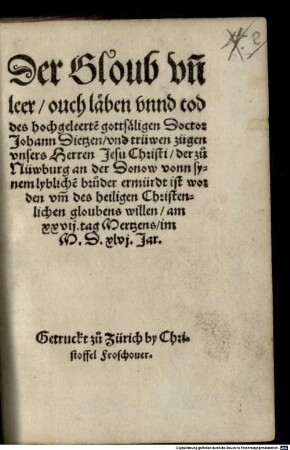 Der Gloub vñ
leer / ouch läben vnnd tod
des hochgeleertē gottsäligen Doctor
Johann Dietzen / vnd trüwen zügen
vnsers Herren Jesu Christi / der zů
Nüwburg an der Donow vonn sy-
nem lyblichē brůder ermürdt ist wor
den vm̃ des heiligen Christen-
lichen gloubens willen / am
xxvij. tag Mertzens / im
M. D. xlvj. Jar.
Getruckt zů Zürich by Chri-
stoffel Froschouer.